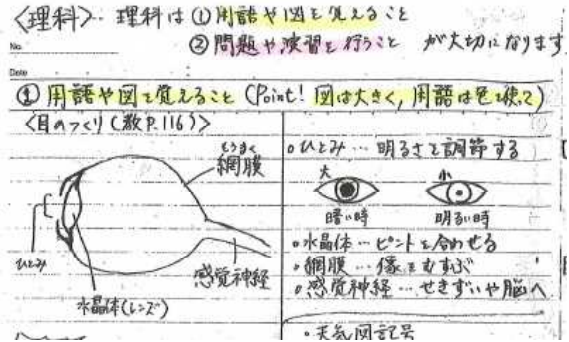 〈理科〉… 理科は ①用語や図を覚えること
②問題や演習を行うこと が大切になります
No.
Date
① 用語や図を覚えること (Point! 図は大きく, 用語は色を使って)
〈目のつくり (教P.116)〉
もうまく
網膜
ひとみ
水晶体(レンズ)
感覚神経
○ひとみ … 明るさを調節する
大 小
暗い時 明るい時
○水晶体 … ピントを合わせる
○網膜 … 像をむすぶ
○感覚神経 … せきずいや脳へ
・天気図記号